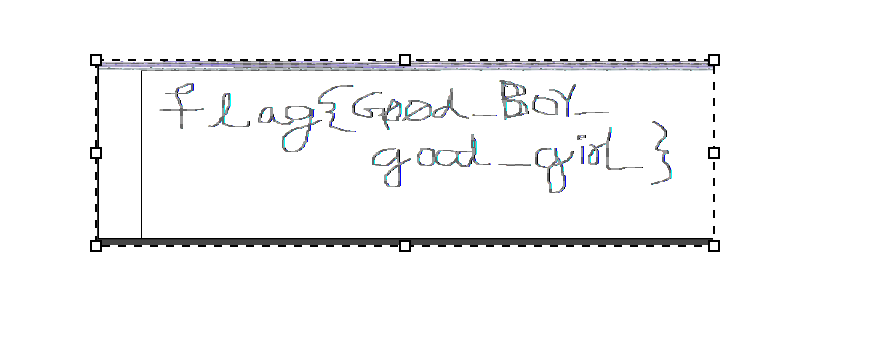 flag{Good_BOY_
good_girl_}